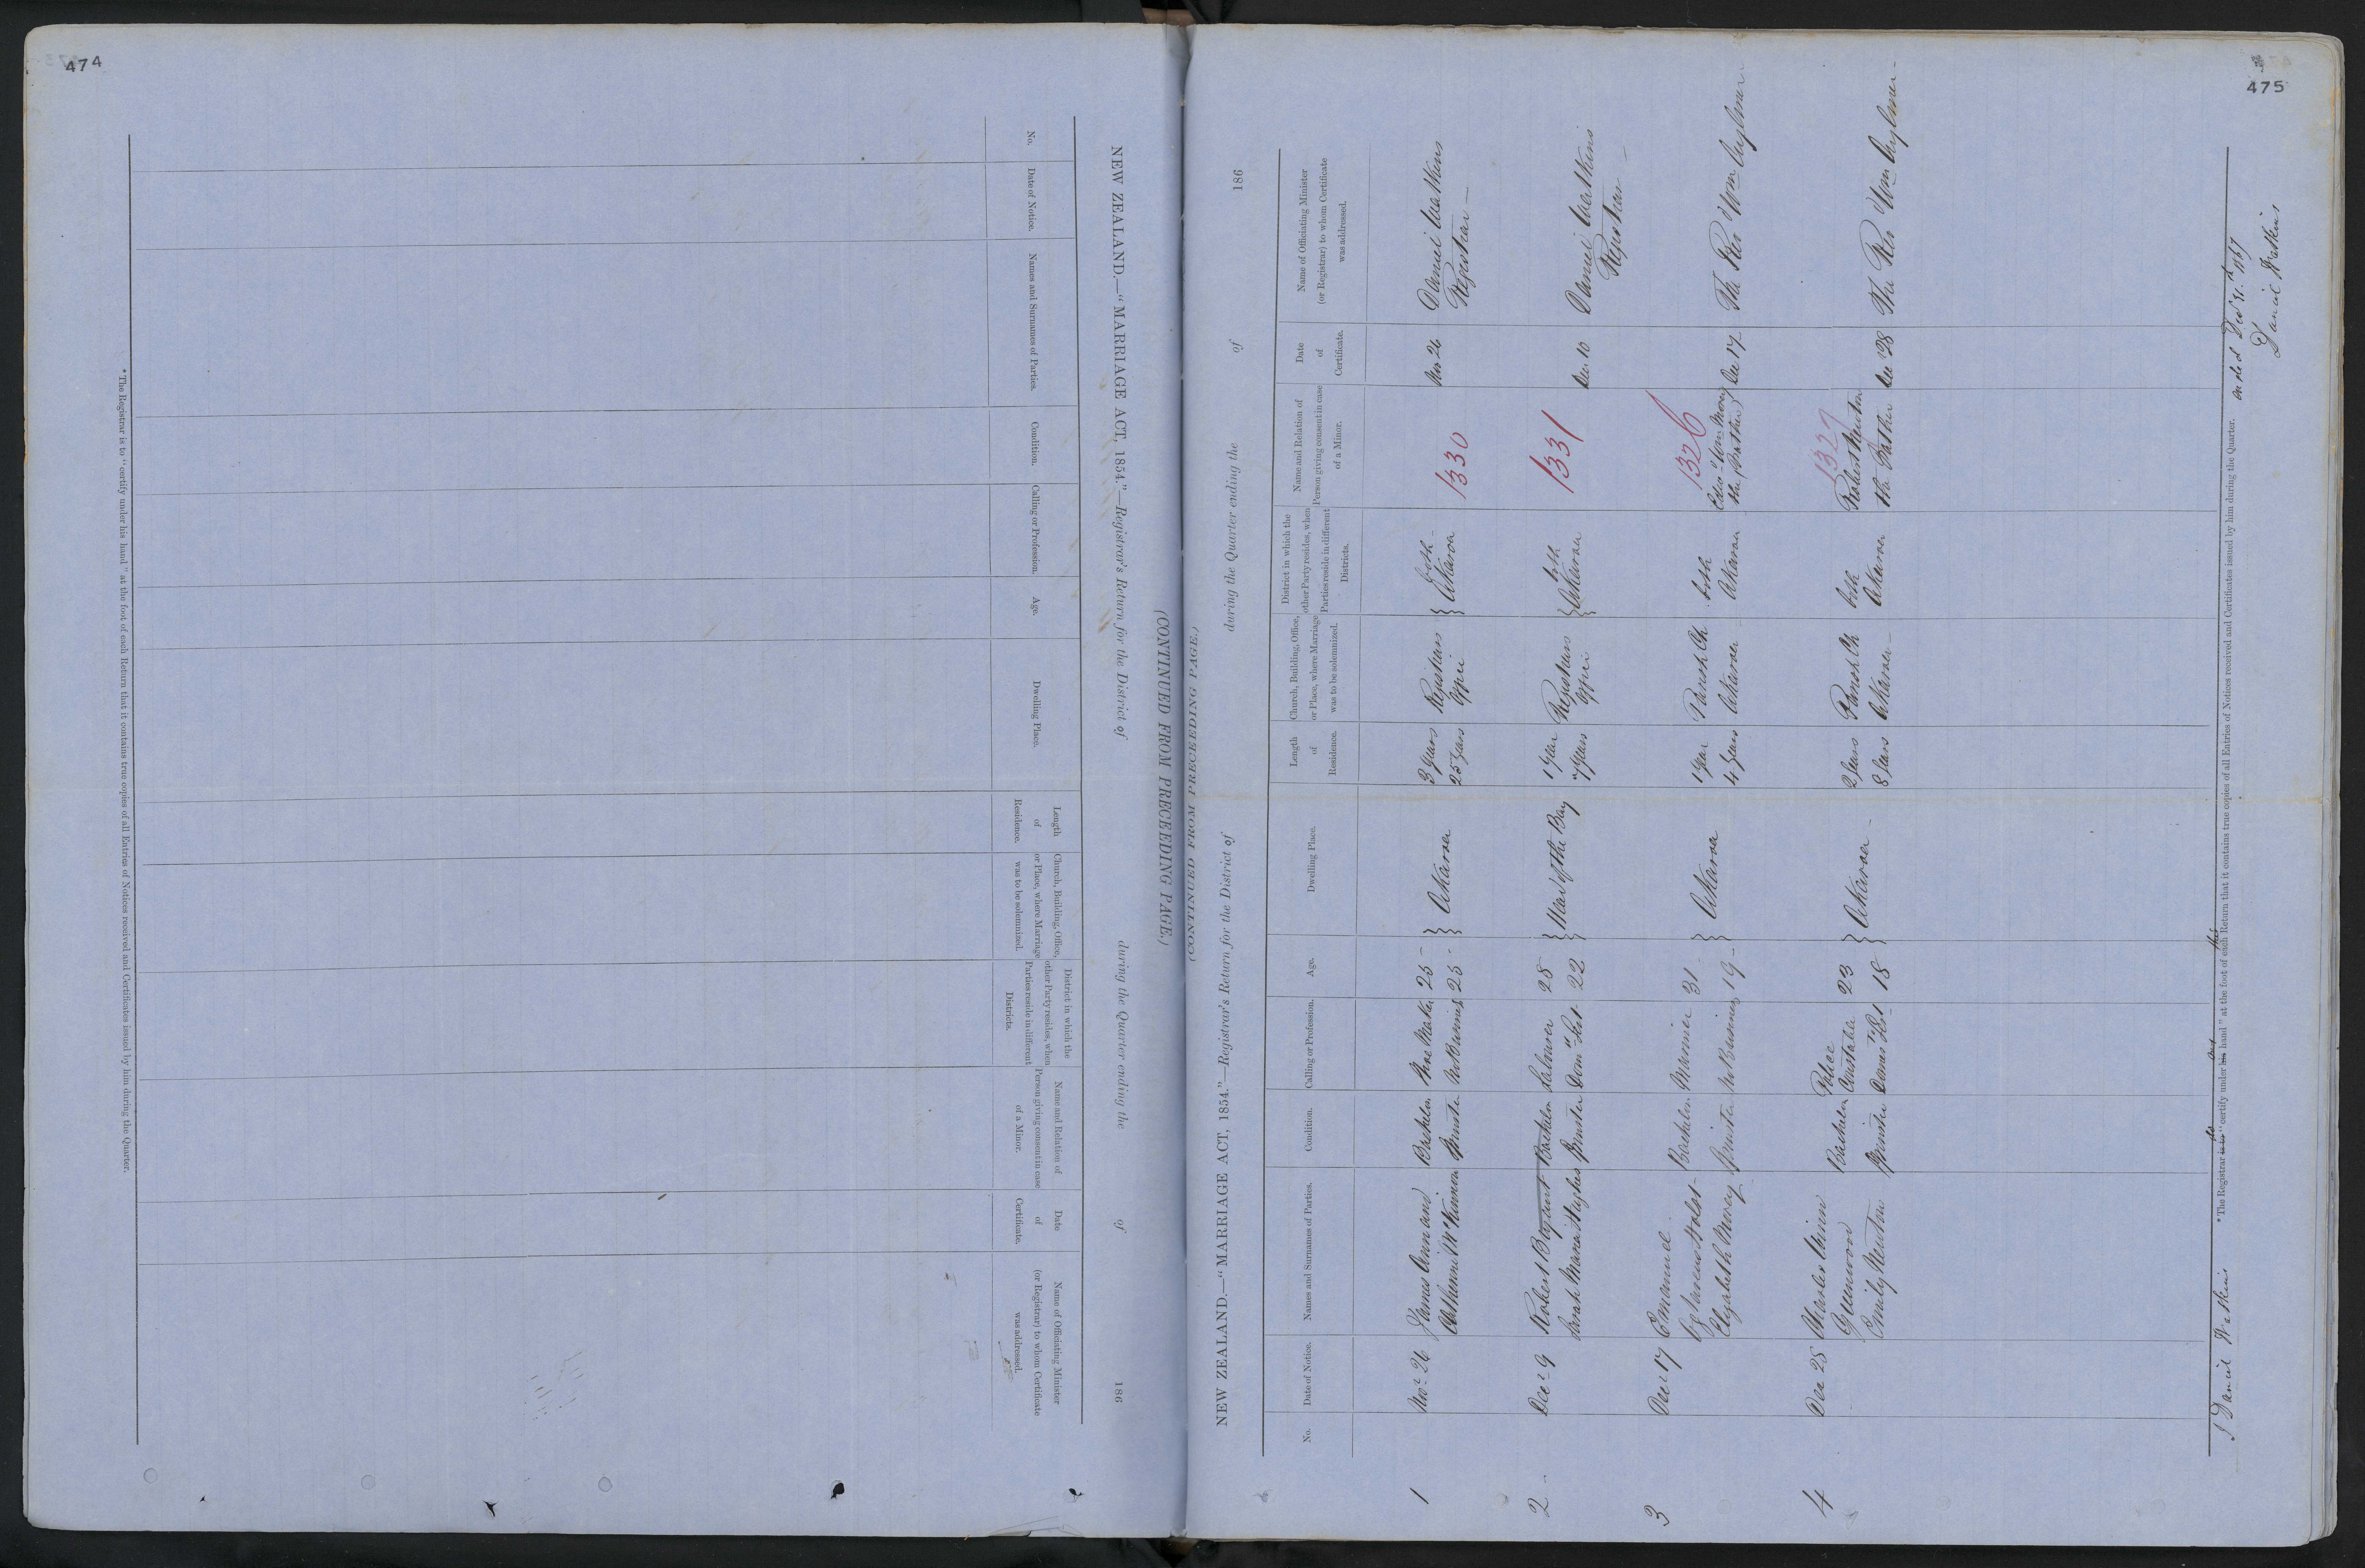 474
NEW ZEALAND.—"MARRIAGE ACT, 1854."—Registrar's Return for the District of during the Quarter ending the of 186
(CONTINUED FROM PRECEEDING PAGE.)
No.
Date of Notice.
Names and Surnames of Parties.
Condition.
Calling or Profession.
Age.
Dwelling Place.
Length
of
Residence.
Church, Building, Office,
or Place, where Marriage
was to be solemnized.
District in which the
other Party resides, when
Parties reside in different
Districts.
Name and Relation of
Person giving consent in case
of a Minor.
Date
of
Certificate.
Name of Officiating Minister
(or Registrar) to whom Certificate
was addressed.
* The Registrar is to "certify under his hand" at the foot of each Return that it contains true copies of all Entries of Notices received and Certificates issued by him during the Quarter.
475
(CONTINUED FROM PRECEEDING PAGE.)
NEW ZEALAND.—"MARRIAGE ACT, 1854."—Registrar's Return for the District of during the Quarter ending the of 186
No.
Date of Notice.
Names and Surnames of Parties.
Condition.
Calling or Profession.
Age.
Dwelling Place.
Length
of
Residence.
Church, Building, Office,
or Place, where Marriage
was to be solemnized.
District in which the
other Party resides, when
Parties reside in different
Districts.
Name and Relation of
Person giving consent in case
of a Minor.
Date
of
Certificate.
Name of Officiating Minister
(or Registrar) to whom Certificate
was addressed.
1 Novr 26 James and Bachelor 25 } Akaroa 3 years Registrars } both 1330 Nov 26 Daniel Watkins
Catherine McKinnon Spinster No Business 25 25 years Office Akaroa Registrar
2 Decr 9 Robert Bachelor Labourer 28 } Head of the Bay 1 year Registrars } both 1331
Sarah Maria Hughes Spinster Domc Sert 22 7 years Office Akaroa Dec 10 Daniel Watkins
Registrar
3 Decr 17 Emanuel
Holst Bachelor Mariner 31 } Akaroa 1 year Parish Ch both 1326
Elizabeth Morey Spinster No Business 19 4 years Akaroa Akaroa Wm Morey the Father Dec 17 The Rev Wm Aylmer
4 Dec 28 Charles
Greenwood Bachelor Police Constable 23 } Akaroa 2 years Parish Ch both 1327 Robert Newton
Emily Newton Spinster Domc Sert 18 8 years Akaroa Akaroa the Father Dec 28 The Rev Wm Aylmer
I Daniel Watkins * The Registrar is to do "certify under his my hand" at the foot of each this Return that it contains true copies of all Entries of Notices received and Certificates issued by him during the Quarter. ended Decr 31st 1867
Daniel Watkins